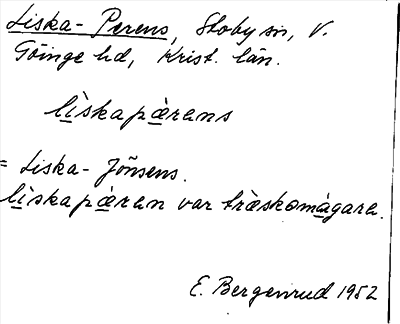 Liska-Perens, Stoby sn, V.
Göinge hd, Krist. län.
lìskapæ̀rens
= Liska-Jönsens.
lìskapæ̀ren var træ̀skomagara.
E. Bergenrud 1952